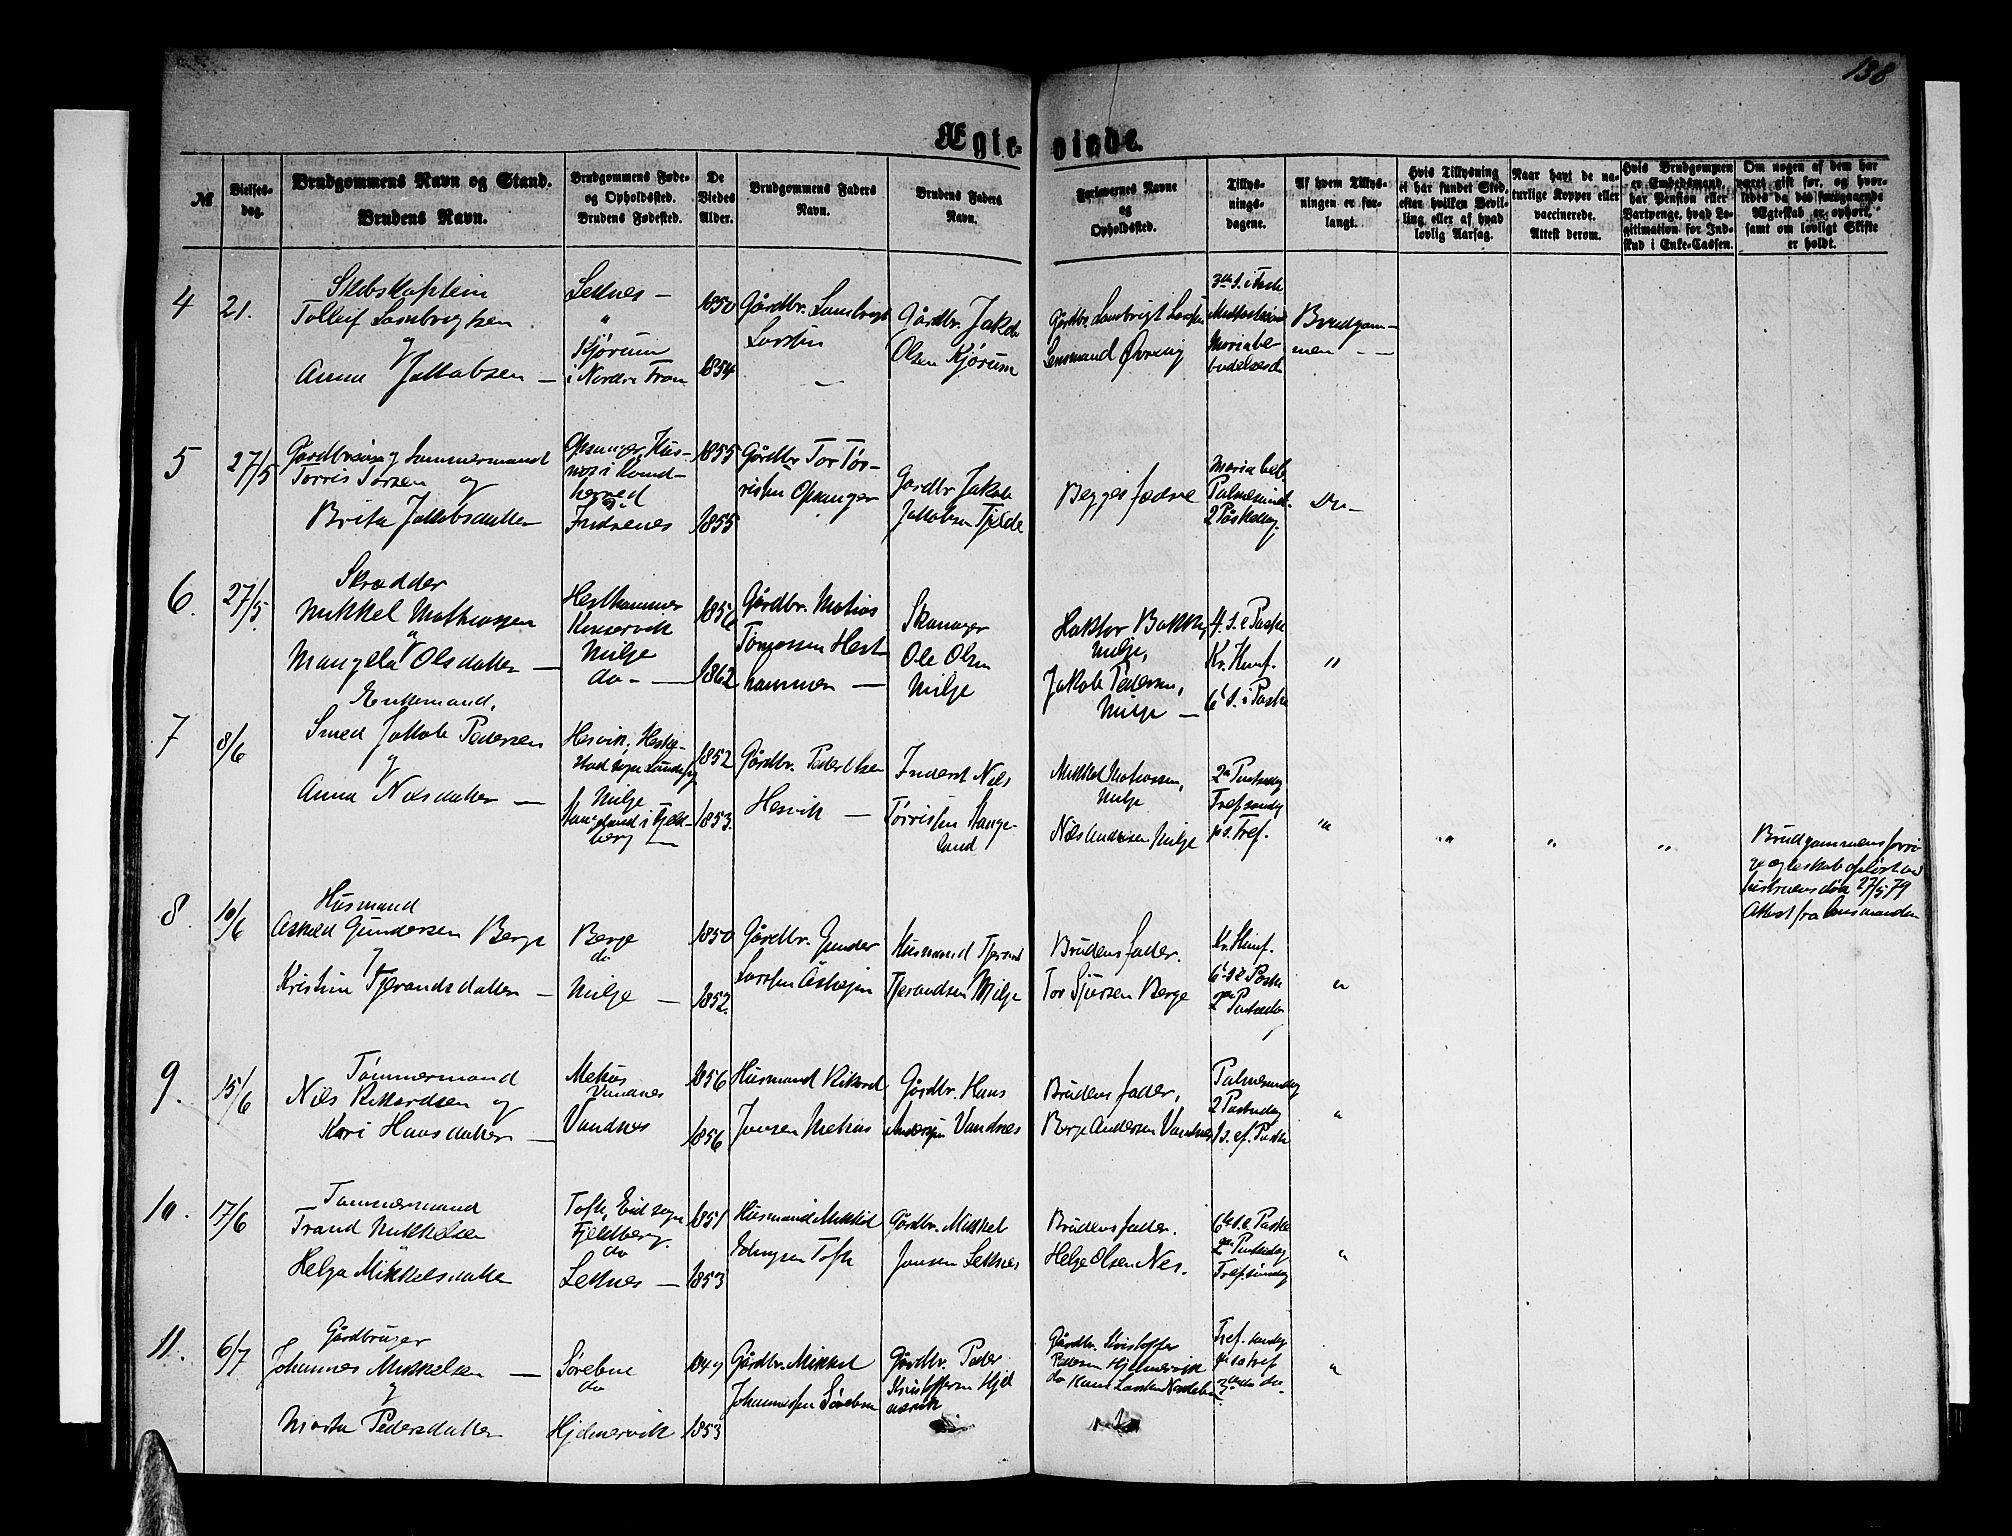 138
Ægte-viede.
№
Vielses-dag.
Brudgommens Navn og Stand.
Brudens Navn.
Brudgommens Føde- og Opholdssted.
Brudens Fødested.
De Viedes Alder.
Brudgommens Faders Navn.
Brudens Faders Navn.
Forlovernes Navne og Opholdssted.
Tillys-nings-dagene.
Af hvem Tillys-ningen er for-langt.
Hvis Tillysning ei har fundet Sted, efter hvilken Bevil-ling, eller af hvad lovlig Aarsag.
Naar havt de na-turlige Kopper eller vaccinerede. Attest derom.
Hvis Brudgommen er Embedsmand, har Pension eller Vartpenge, hvad Le-gitimation for Ind-skud i Enke-Cassen.
Om nogen af dem har været gift før, og hvor-ledes da det foregaaende Ægteskab er ophørt, samt om lovligt Skifte er holdt.
4
21.
Skibskaptein
Tolleif Lambrigtsen
og
Anna Jakobsen —
Leknes —
"
Kjørum
i Nordre Fron
1850
1854
Gårdbr. Lambrigt
Larsen
Gårdbr. Jakob
Olsen Kjørum
Gårdbr. Lambrigt Larsen
Lensmand
3die S. i Faste
Midfastesøn
Mariabe-
budelsesd
Brudgom-
men — —
5
27/5
Tørris Torsen og
Brita Jakobsdatter
1855
1855
Gårdbr. Tor Tør-
risen Opsanger
Gardbr. Jakob
Jakobsen Tjelde
Begges fædre
Maria beb.
Palmesønd.
2 Påskedag
Do —
6.
27/5.
Skrædder
Mikkel Mathiassen
og
Mangela Olsdatter —
Hesthammer
Kinservik
Milje
do — —
1856
1862
Gårdbr. Matias
Tomassen Hest-
hammer —
Ole Olsen
Milje
Milje,
Jakob Pedersen,
Milje —
4. S. e Paske
Kr. Himf.
6te S. i Paske
"
7
8/6
Enkemand,
Smed Jakob Pedersen
og
Anna Nilsdatter —
Hesvik, Heske-
stad sogn
Milje
i Fjeld-
berg —
1852
1853.
Gårdbr. Peder Olsen
Hesvik —
Inderst Nils
Tørrisen Hauge-
land
Mikkel Matiassen,
Milje
Nils Andersen Milje
2n Pintsedag
Tref.søndag
1s. Tref.
"
"
"
"
Brudgommens forri-
ge ægteskab opløst ved
hustruens død 27/5 79
Attest fra lensmanden
8.
10/6
Husmand
Askild Gundersen Berge
og
Kristine Tjerandsdatter —
Berge
do
Milje —
1850
1852.
Gårdbr. Gunder
Husmand Tjerand
Tjerandsen Milje
Brudens fader.
Tor Sjursen Berge
Kr. Himf.
6te S. e Paske
2n Pintsedag
"
9.
15/6
Tømmermand
Nils Rikardsen og
Kari Hansdatter —
Mehus
Vandnes
Vandnes
1856
1856
Husmand Rikard
Jonsen Mehus
Gårdbr. Hans
Andersen Vandnes
Brudens fader,
Berge Andersen Vandnes
Palmesøndag
2 Paskedag
1 s. ef. Paske
"
10.
17/6
Tømmermand
Trand Mikkelsen
Helga Mikkelsdatter
Tofte, Eid sogn
Fjeldberg.
do
Leknes —
1851
1853
Husmand Mikkel
Tofte
Gårdbr. Mikkel
Jonsen Leknes
Brudens fader.
Helge Olsen Nes.
6te S. e Paske
2n Pintsedag
Tref.søndag
"
11.
6/7
Gårdbruger
Johannes Mikkelsen —
og
Marta Pedersdatter
Sørebnæ
do
Hjelmervik
1849
1853
Gårdbr. Mikkel
Johannesen
Gårdbr. Peder
Kristoffersen Hjel
mervik
Gårdbr. Kristoffer
Pedersen Hjelmervik
do Hans Larsen
Tref. søndag
"